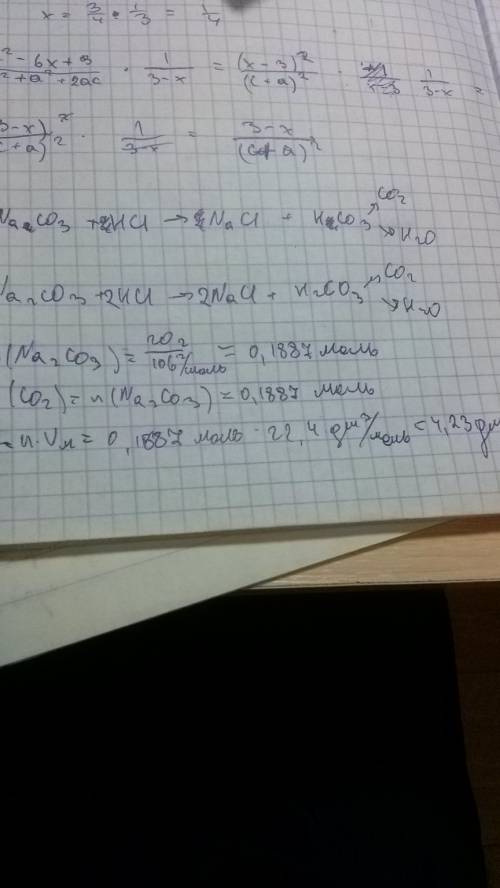 x = 3/4 · 1/3 = 1/4
² - 6x + 9 / ² + a² + 2ac · 1/3-x = (x - 3)²/(c+a)² · 1/3-x =
3-x)² / c+a)² · 1/3-x = 3-x/(c+a)²
Na2CO3 + 2HCl → 2NaCl + H2CO3 ↗ CO2 ↘ H2O
Na2CO3 + 2HCl → 2NaCl + H2CO3 ↗ CO2 ↘ H2O
(Na2CO3) = 20г/106г/моль = 0,1887 моль
(CO2) = n(Na2CO3) = 0,1887 моль
= n·Vм = 0,1887 моль · 22,4 дм³/моль = 4,23 дм